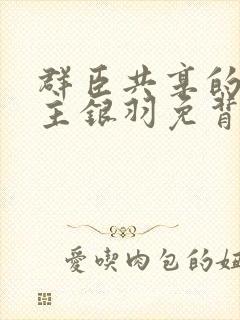 群臣共享的
主银羽免背
愛喫肉包的妞